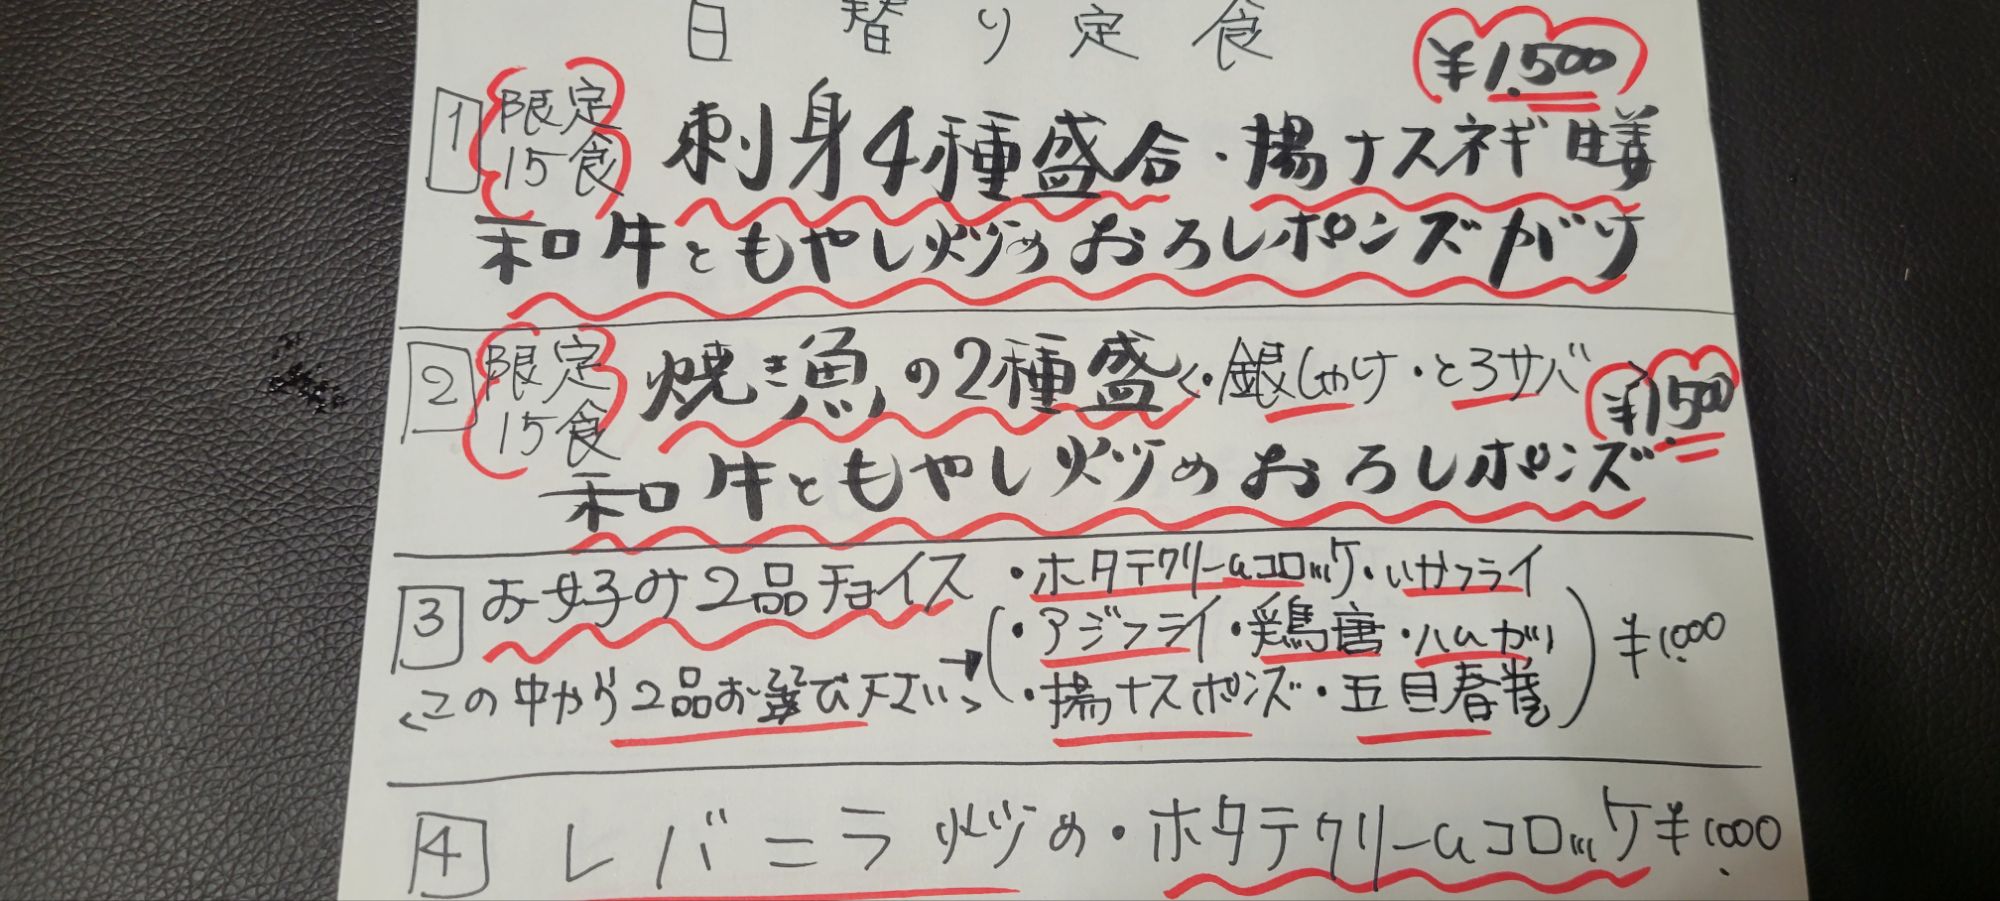 日替り定食
¥1.500
1 限定15食 刺身4種盛合・揚ナスネギ
和牛ともやし炒めおろしポンズがけ
2 限定15食 焼き魚の2種盛<・銀しゃけ・とろサバ> ¥1.500
和牛ともやし炒めおろしポンズ
3 お好み2品チョイス
<この中から2品お選び下さい>→
(・ホタテクリームコロッケ・いかフライ
・アジフライ・鶏唐・ハムカツ
・揚ナスポンズ・五目春巻)
¥1.000
4 レバニラ炒め・ホタテクリームコロッケ ¥1.000